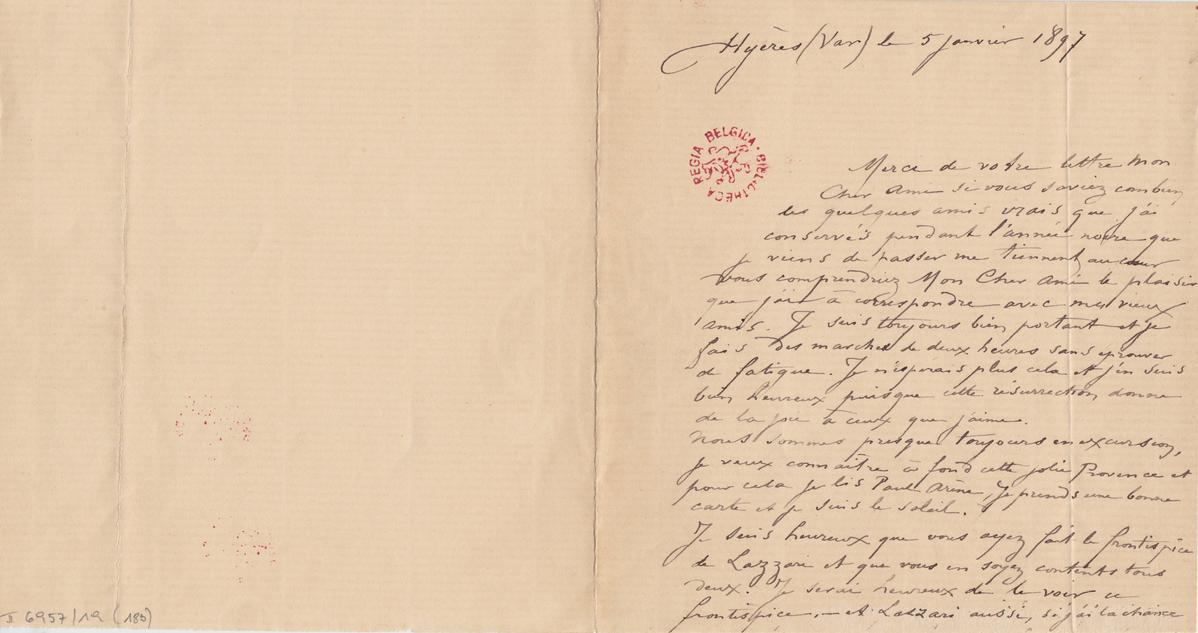 Hyères (Var) le 5 janvier 1897
REGIA BELGICA · BIBLIOTHECA
Merci de votre lettre Mon
Cher Ami si vous saviez combien
les quelques amis vrais que j'ai
conservés pendant l'année noire que
je viens de passer me tiennent au cœur
vous comprendriez Mon Cher Ami le plaisir
que j'ai à correspondre avec mes vieux
amis. Je suis toujours bien portant et je
fais des marches de deux heures sans éprouver
de fatigue. Je n'esperais plus cela et j'en suis
bien heureux puisque cette résurrection donne
de la joie à ceux que j'aime.
Nous sommes presque toujours en excursion,
je veux connaître à fond cette jolie Provence et
pour cela je lis Paul Arène, je prends une bonne
carte et je suis le soleil.
Je suis heureux que vous ayez fait le frontispice
de Lazzari et que vous en soyez contents tous
deux. Je serai heureux de le voir ce
frontispice, — et Lazzari aussi, si j'ai la chance
II 6957/19 (180)